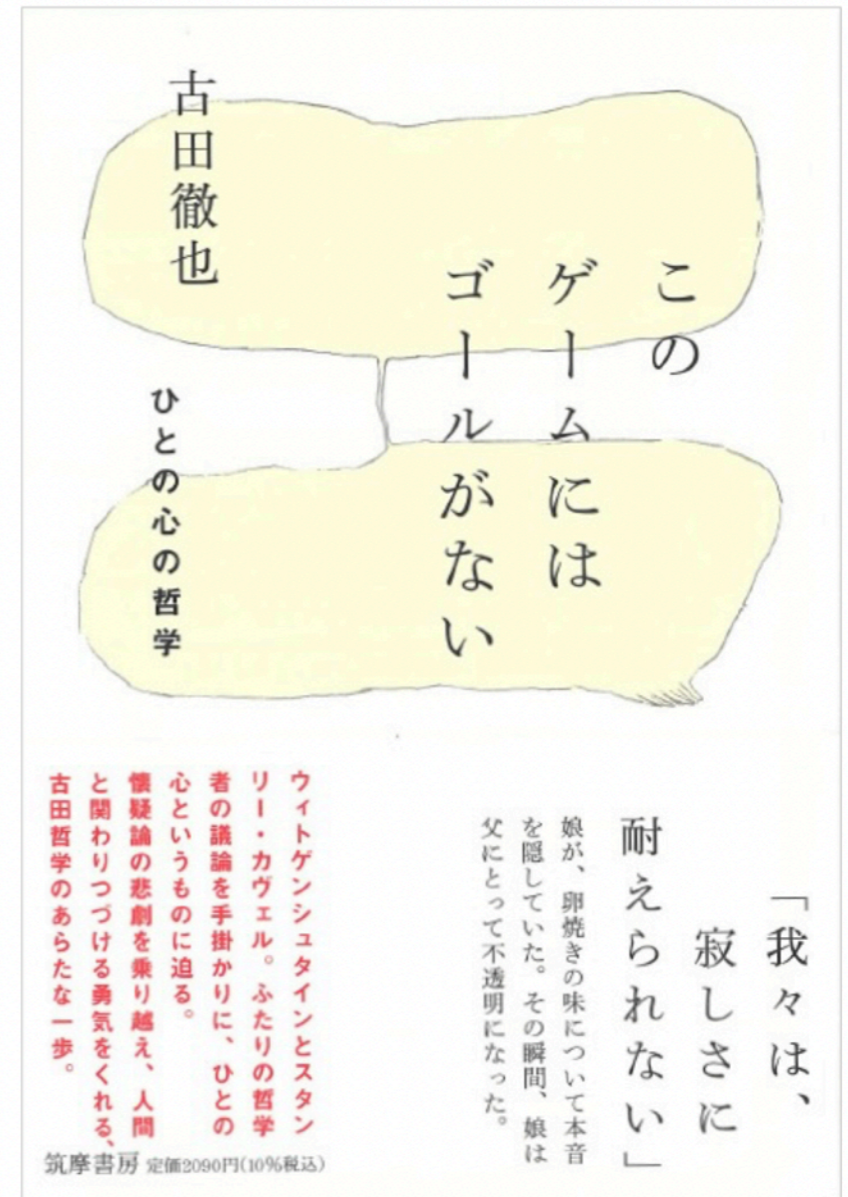 この
ゲームには
ゴールがない
古田徹也
ひとの心の哲学
「我々は、
寂しさに
耐えられない」
娘が、卵焼きの味について本音
を隠していた。その瞬間、娘は
父にとって不透明になった。
ウィトゲンシュタインとスタン
リー・カヴェル。ふたりの哲学
者の議論を手掛かりに、ひとの
心というものに迫る。
懐疑論の悲劇を乗り越え、人間
と関わりつづける勇気をくれる、
古田哲学のあらたな一歩。
筑摩書房 定価2090円(10%税込)